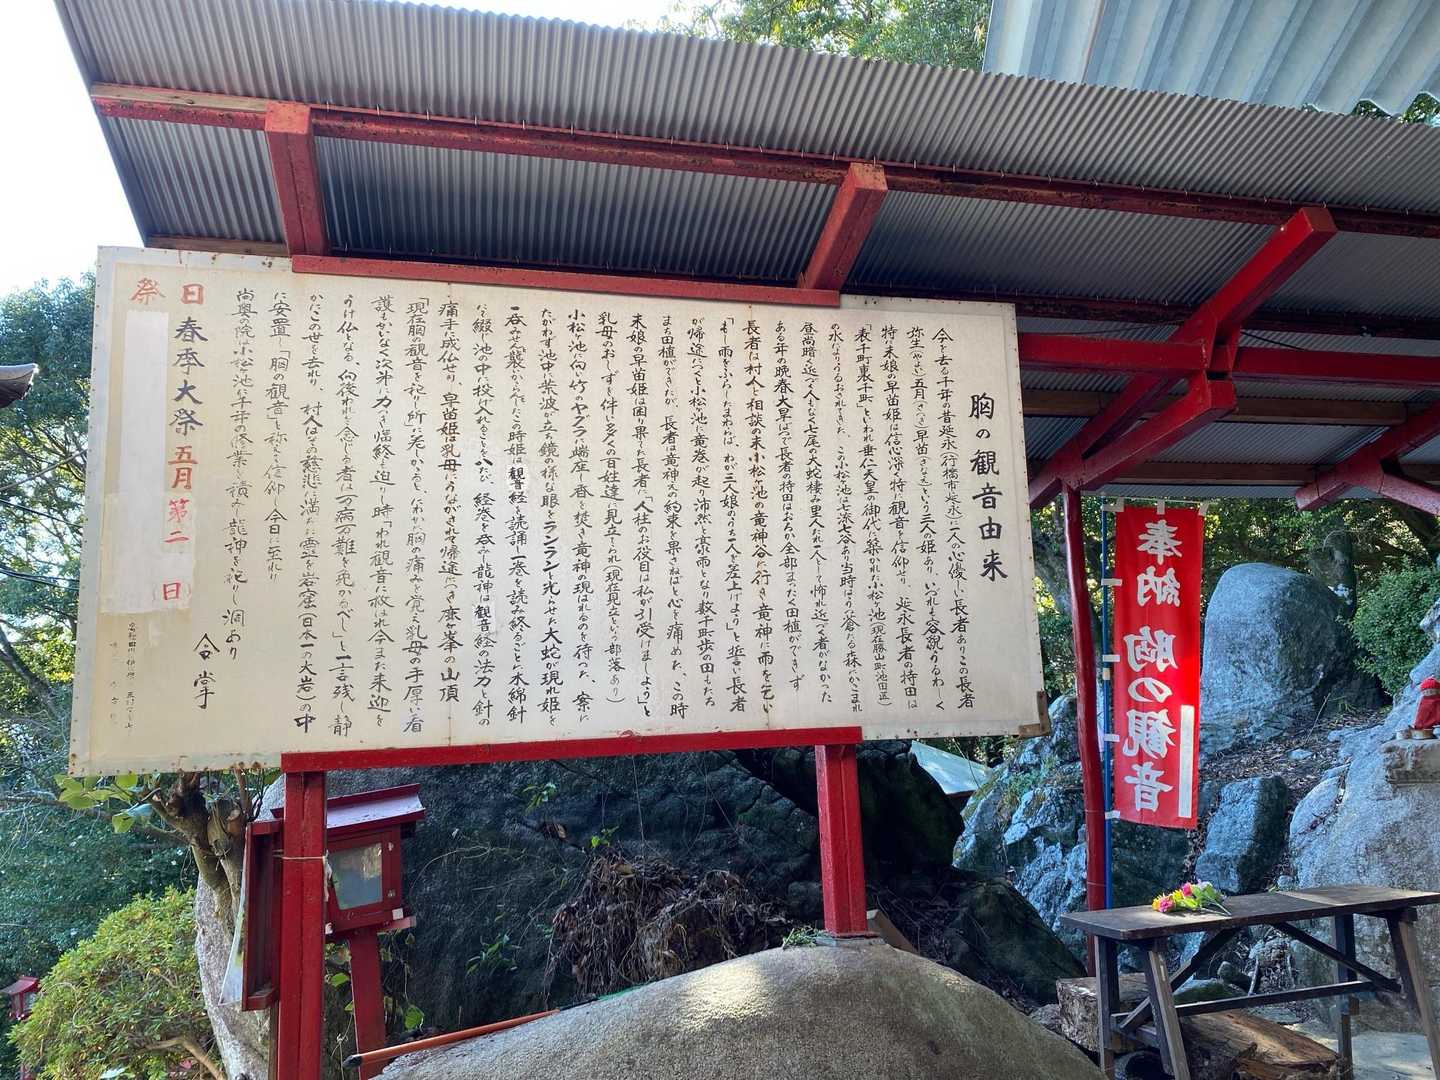 胸の観音由来
今を去る千年の昔延永(行橋市延永)に一人の心優しい長者ありこの長者
弥生(やよい)五月(さつき)早苗(さなえ)という三人の姫あり、いづれも容貌うるわしく
特に末娘の早苗姫は信心深く特に観音を信仰せり、延永長者の持田は
「表千町裏千町」といわれ垂仁天皇の御代に築かれた小松ヶ池(現在勝山町池田区)
の水によりうるおされてきた、この小松ヶ池は七流七谷あり当時はうっ蒼たる森にかこまれ
昼尚暗く近づく人もなく七尾の大蛇棲み里人だれ一人として怖れ近づく者がなかった
ある年の晩春大旱ばつで長者の持田はおろか全部まったく田植ができず
長者は村人と相談の末小松ヶ池の竜神谷に行き竜神に雨を乞い
「もし雨をふらしたまわらば、わが三人娘のうち一人を差上げよう」と誓い長者
が帰途につくと小松ヶ池に竜巻が起り沛然と豪雨となり数千町歩の田もたち
まち田植ができたが、長者は竜神との約束を果さねばと心を痛めた、この時
末娘の早苗姫は困り果てた長者に「人柱のお役目は私が引受けましょう」と
乳母のおしずを伴い多くの百姓達に見立てられ(現在見立という部落あり)
小松ヶ池に向い竹のヤグラに端座し香を焚き竜神の現はれるのを待った、案に
たがわず池中に紫波が立ち鏡の様な眼をランランと光らせた大蛇が現れ姫を
一呑みせんと襲いかからんとしたこの時姫は観音経を読誦し一巻を読み終るごとに木綿針
にて綴り池の中に投げ入れることを八たび経巻を呑みし龍神は観音経の法力と針の
痛手に成仏せり、早苗姫は乳母にうながされて帰途につき鹿ヶ峯の山頂
「現在胸の観音を祀りし所」に差しかかるとにわかに胸の痛みを覚え乳母の手厚い看
護もかいなく次第に力つき臨終も迫りし時「われ観音に救はれ今また来迎を
うけ仏となる、向後われを念じる者は万病万難を免かるべし」と一言残し静
かにこの世を去れり、村人はその慈悲に満ちた霊を岩窟(日本一の大岩)の中
に安置し「胸の観音」と称えて信仰し今日に至れり
尚奥の院は小松ヶ池に千年の修業を積み龍神を祀りし洞あり
合掌
日 春季大祭 五月 第二 日
祭
奉納 胸の観音